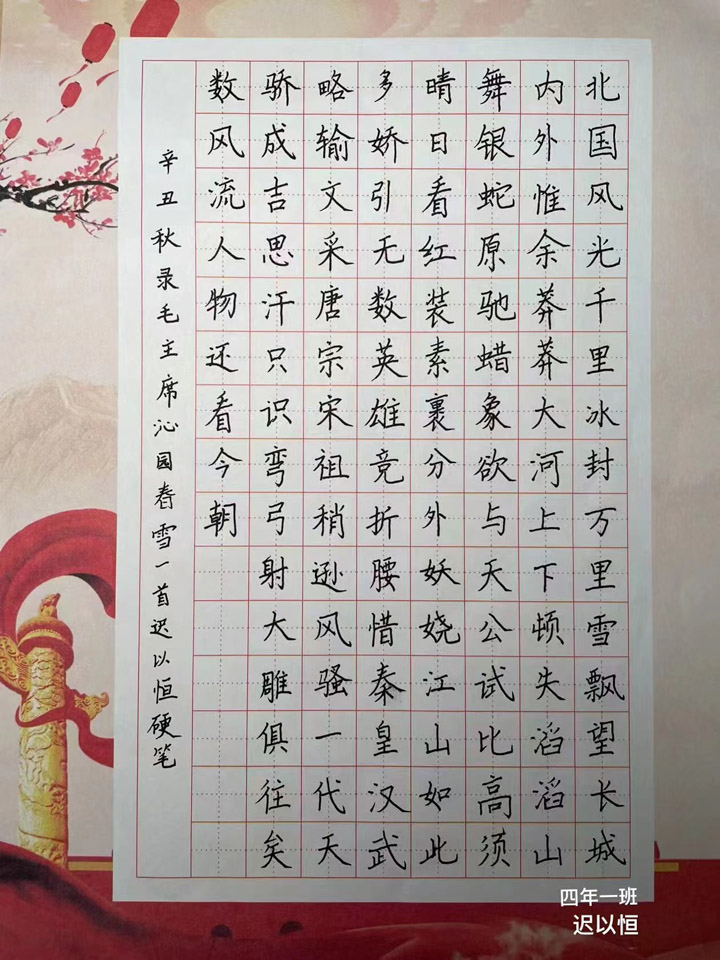 北国风光千里冰封万里雪飘望长城
内外惟余莽莽大河上下顿失滔滔山
舞银蛇原驰蜡象欲与天公试比高须
晴日看红装素裹分外妖娆江山如此
多娇引无数英雄竞折腰惜秦皇汉武
略输文采唐宗宋祖稍逊风骚一代天
骄成吉思汗只识弯弓射大雕俱往矣
数风流人物还看今朝
辛丑秋录毛主席沁园春雪一首迟以恒硬笔
四年一班
迟以恒